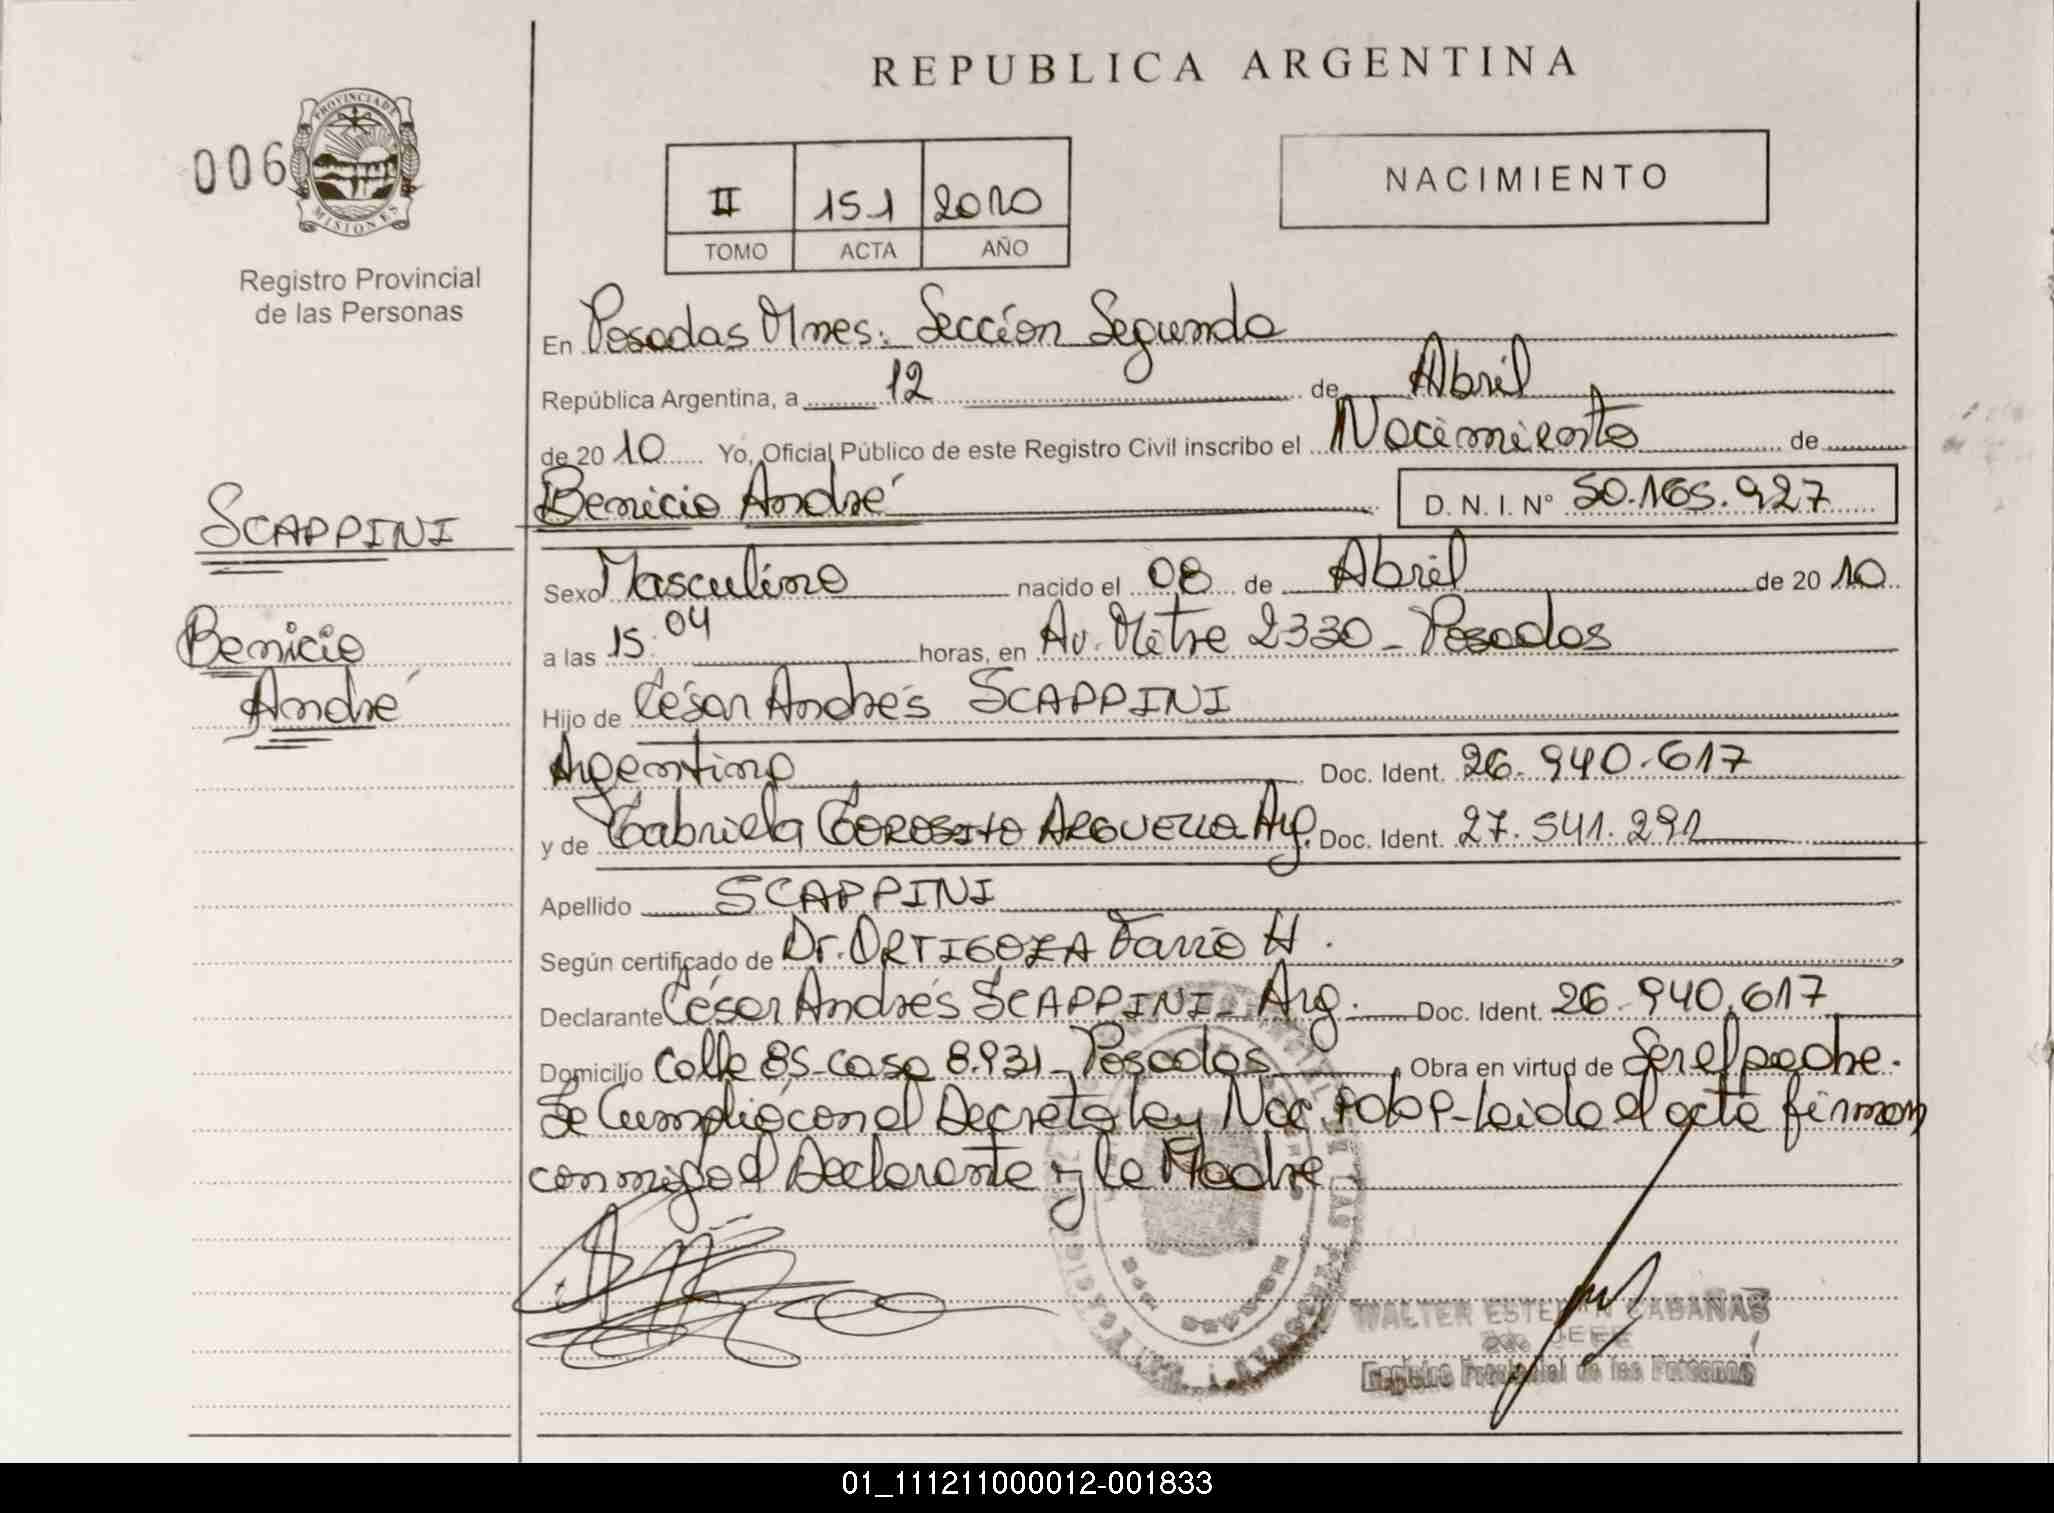 REPUBLICA ARGENTINA
006
PROVINCIA DE
MISIONES
II 151 2010
TOMO ACTA AÑO
NACIMIENTO
Registro Provincial
de las Personas
En Posadas Mnes. Sección Segunda
República Argentina, a 12 de Abril
de 2010 Yo, Oficial Público de este Registro Civil inscribo el Nacimiento de
Benicio André D. N. I. N° 50.165.927
SCAPPINI
Benicio
André
Sexo Masculino nacido el 08 de Abril de 2010
a las 15:04 horas, en Av. Mitre 2330 - Posadas
Hijo de César Andrés SCAPPINI
Argentino Doc. Ident. 26.940.617
y de Gabriela GOROSITO ARGUELLO Arg. Doc. Ident. 27.541.291
Apellido SCAPPINI
Según certificado de Dr. ORTIGOZA H.
Declarante César Andrés SCAPPINI - Arg. Doc. Ident. 26.940.617
Domicilio Calle 85 - casa 8.931 - Posadas Obra en virtud de Ser el padre.
Se Cumplió con el Decreto Ley Nac. - Leida el acta firman
conmigo el Declarante y la Madre
WALTER ESTEBAN CABAÑAS
JEFE
Registro Provincial de las Personas
01_111211000012-001833